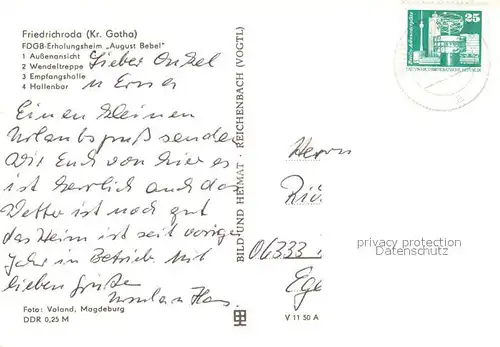 Friedrichroda (Kr. Gotha)
FDGB-Erholungsheim „August Bebel"
1 Außenansicht
2 Wendeltreppe
3 Empfangshalle
4 Hallenbar
Lieber Onkel
u Erna
Einen kleinen
Urlaubsgruß senden
Wir Euch von hier es
ist herrlich auch das
Wetter ist noch gut
das Heim ist seit voriges
Jahr in Betrieb Mit
lieben Grüßen
Hans
Foto: Voland, Magdeburg
DDR 0,25 M
BILD UND HEIMAT · REICHENBACH (VOGTL)
25
Herrn
06333
privacy protection
Datenschutz
V 11 50 A